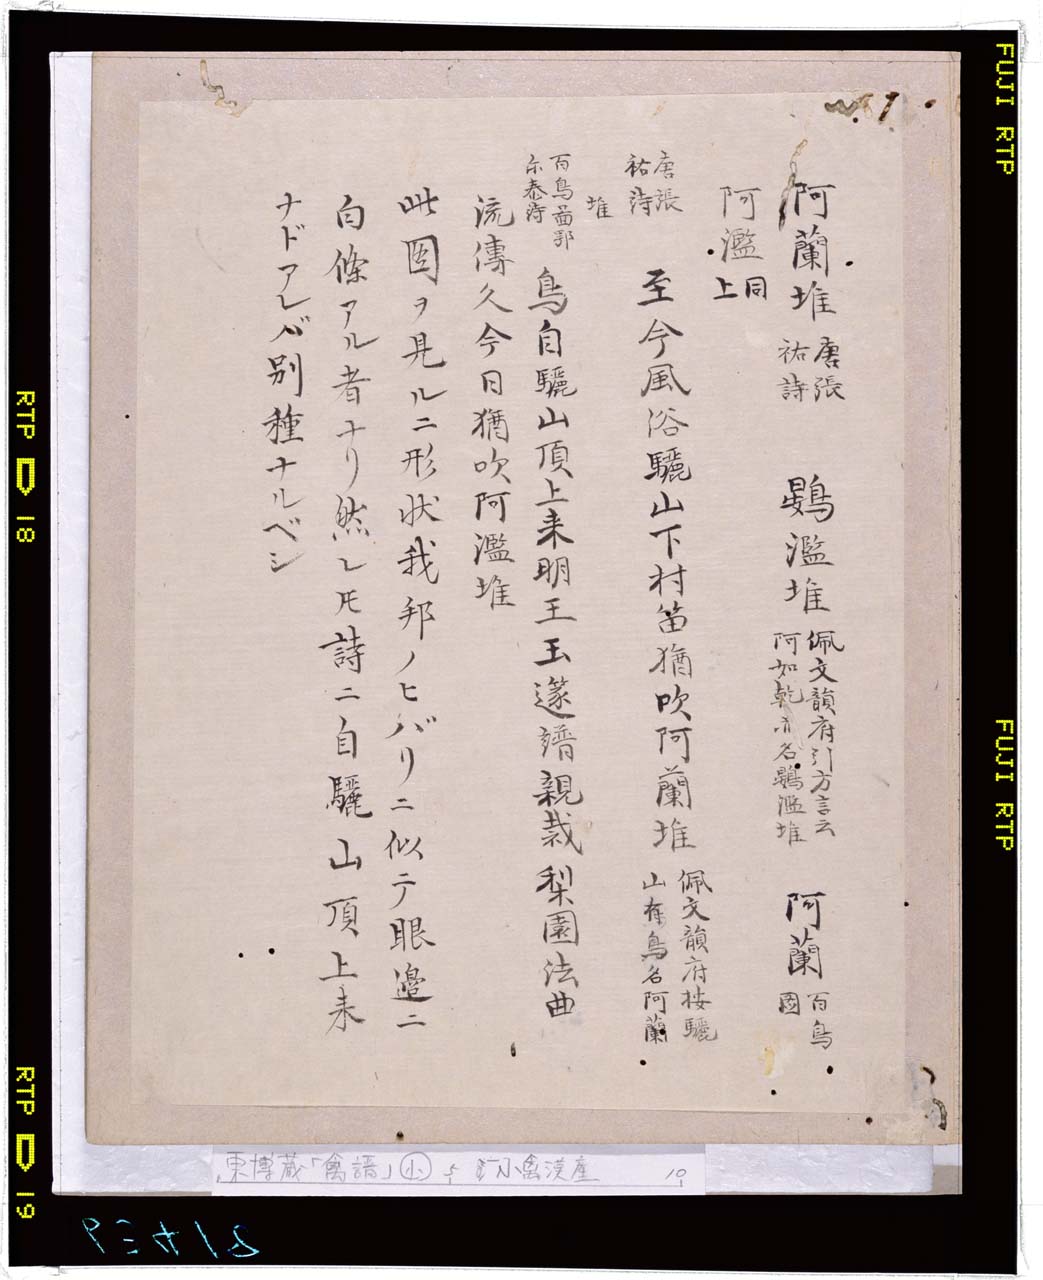 阿蘭堆 唐張祐詩 鷃濫堆 佩文韻府引方言云阿如乾亦名鷃濫堆 阿蘭 百鳥圖
阿濫 同上
唐張祐詩 至今風俗驪山下村笛猶吹阿蘭堆 佩文韻府按驪山有鳥名阿蘭堆
百鳥圖鄂尓泰詩 鳥自驪山頂上来明王玉邃譜親裁梨園法曲
流傳久今日猶吹阿濫堆
此圖ヲ見ルニ形状我邦ノヒバリニ似テ眼邉ニ
白條アル者ナリ然レ𪜈詩ニ自驪山頂上来
ナドアレバ別種ナルベシ
東博蔵「禽譜」小 小禽漢産
FUJI RTP
FUJI RTP
RTP 18
RTP 19